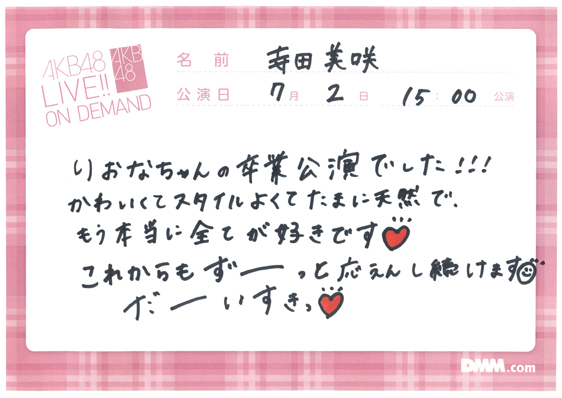 AKB48
LIVE!!
ON DEMAND
AKB
48
名前 寺田美咲
公演日 7月 2日 15:00 公演
りおなちゃんの卒業公演でした!!!
かわいくてスタイルよくてたまに天然で、
もう本当に全てが好きです
これからもずーーっと応えんし続けます
だーいすきっ
DMM.com